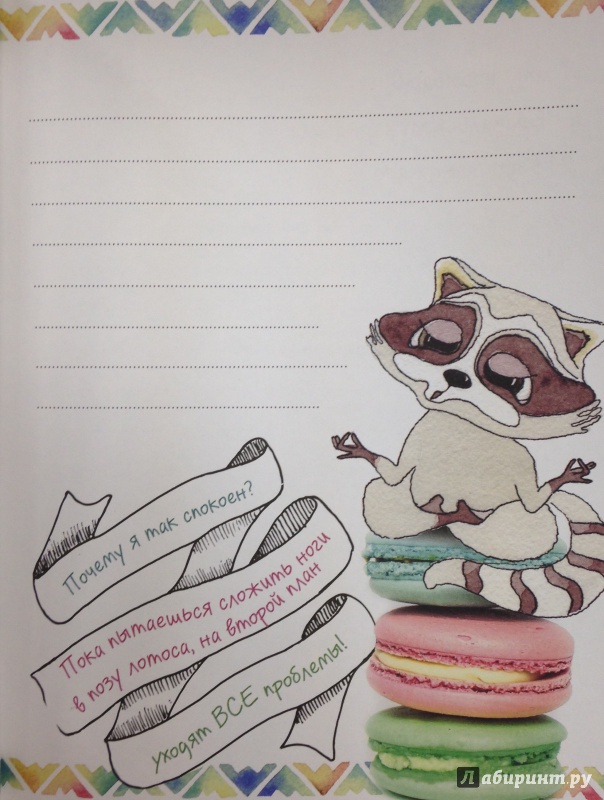 Почему я так спокоен?
Пока пытаешься сложить ноги
в позу лотоса, на второй план
уходят ВСЕ проблемы!
Лабиринт.ру